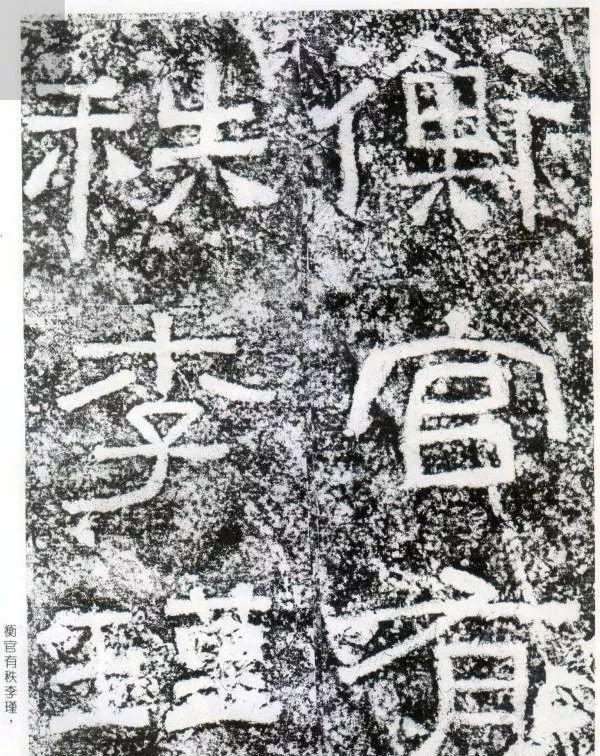 衡官有
秩李瑾
衡官有秩李瑾，